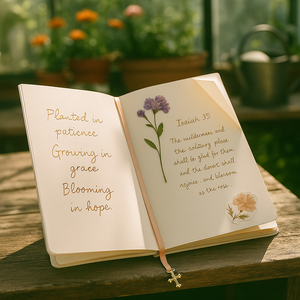 Planted in
patience
Growing in
grace
Blooming
in hope.
Isaiah 35
The wilderness and
the solitary place
shall be glad for them;
and the desert shall
rejoice, and blossom
as the rose.